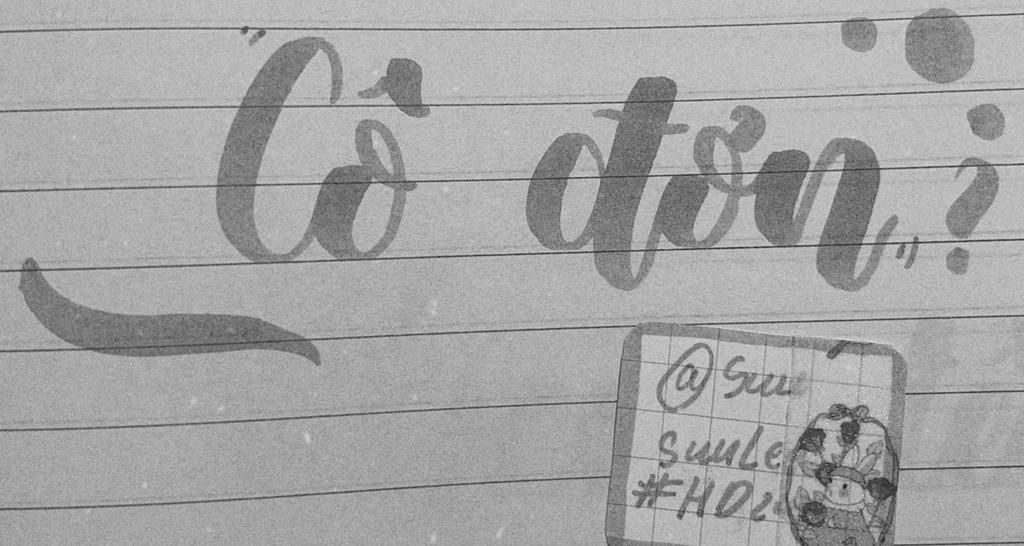 "Cô đơn"?
@Suu
SuuLe
#HD